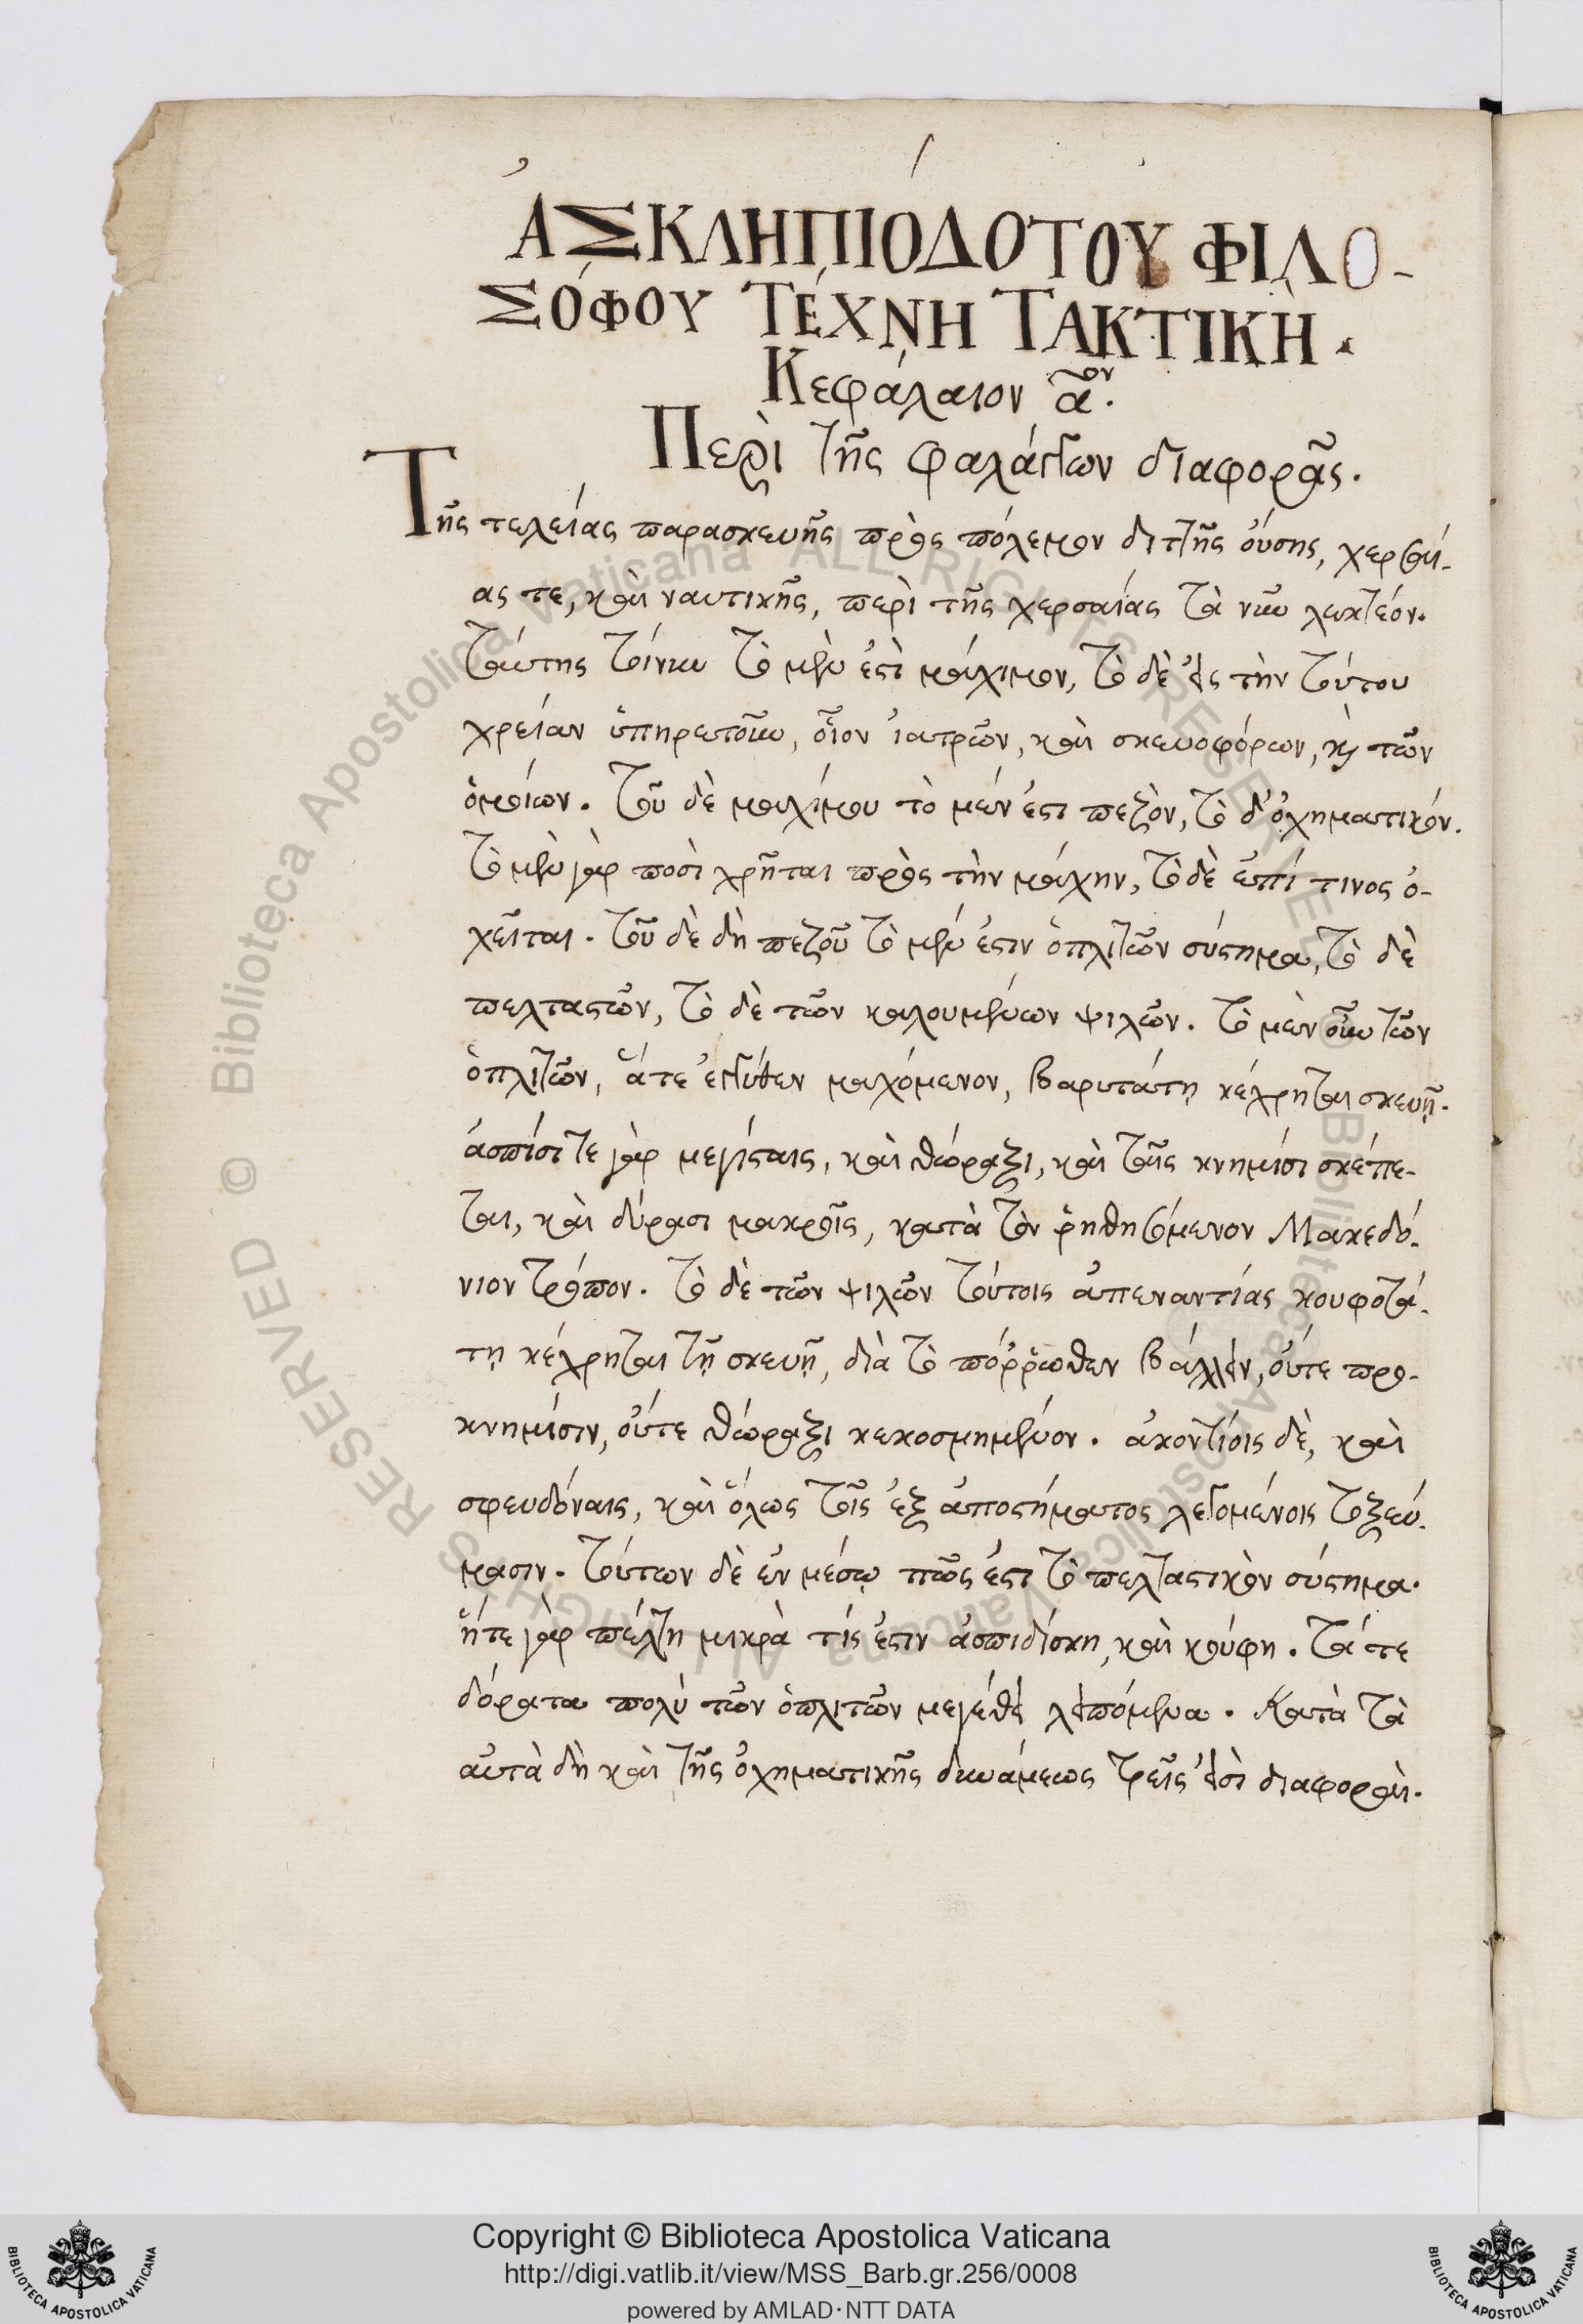 ἈΣΚΛΗΠΙΟΔΌΤΟΥ ΦΙΛΟ-
ΣΌΦΟΥ ΤΈΧΝΗ ΤΑΚΤΙΚῊ.
Κεφάλαιον α̃ον.
Περὶ τῆς φαλάγγων διαφορᾶς.
Τῆς τελείας παρασκευῆς πρὸς πόλεμον διττῆς ὄυσης, χερσαί-
ας τε, καὶ ναυτικῆς, περὶ τῆς χερσαίας τὰ νῦν λεκτέον.
Ταύτης τοίνυν τὸ μὲν ἐστὶ μάχιμον, τὸ δὲ εἰς τὴν τούτου
χρείαν ὑπηρετοῦν, οἷον ἰατρῶν, καὶ σκευοφόρων, καὶ τῶν
ὁμοίων. Τοῦ δὲ μαχίμου τὸ μέν ἐστι πεζὸν, τὸ δ' ὀχηματικόν.
Τὸ μὲν γὰρ ποσὶ χρῆται πρὸς τὴν μάχην, τὸ δὲ ἐπί τινος ὀ-
χεῖται. Τοῦ δὲ δὴ πεζοῦ τὸ μέν ἐστιν ὁπλιτῶν σύστημα, τὸ δὲ
πελταστῶν, τὸ δὲ τῶν καλουμένων ψιλῶν. Τὸ μὲν οὖν τῶν
ὁπλιτῶν, ἅτε ἐγγύθεν μαχόμενον, βαρυτάτῃ κέχρηται σκευῇ.
ἀσπίσι τε γὰρ μεγίσταις, καὶ θώραξι, καὶ ταῖς κνημίσι σκέπε-
ται, καὶ δόρασι μακροῖς, κατὰ τὸν ῥηθησόμενον Μακεδό-
νιον τρόπον. Τὸ δὲ τῶν ψιλῶν τούτοις ἀπεναντίας κουφοτά-
τῃ κέχρηται τῇ σκευῇ, διὰ τὸ πόῤῥωθεν βάλλειν, οὔτε προ-
κνημίσιν, οὔτε θώραξι κεκοσμημένον. ἀκοντίοις δὲ, καὶ
σφενδόναις, καὶ ὅλως τοῖς ἐξ ἀποστήματος λεγομένοις τοξεύ-
μασιν. Τούτων δὲ ἐν μέσῳ πῶς ἐστι τὸ πελταστικὸν σύστημα.
ἥτε γὰρ πέλτη μικρὰ τίς ἐστιν ἀσπιδίσκη, καὶ κούφη. Τά τε
δόρατα πολὺ τῶν ὁπλιτῶν μεγέθει λειπόμενα. Κατὰ τὰ
αὐτὰ δὴ καὶ τῆς ὀχηματικῆς δυνάμεως τρεῖς εἰσὶ διαφοραὶ.
© Biblioteca Apostolica Vaticana ALL RIGHTS RESERVED
© Biblioteca Apostolica Vaticana ALL RIGHTS RESERVED
Copyright © Biblioteca Apostolica Vaticana
http://digi.vatlib.it/view/MSS_Barb.gr.256/0008
powered by AMLAD·NTT DATA
BIBLIOTECA APOSTOLICA VATICANA
BIBLIOTECA APOSTOLICA VATICANA